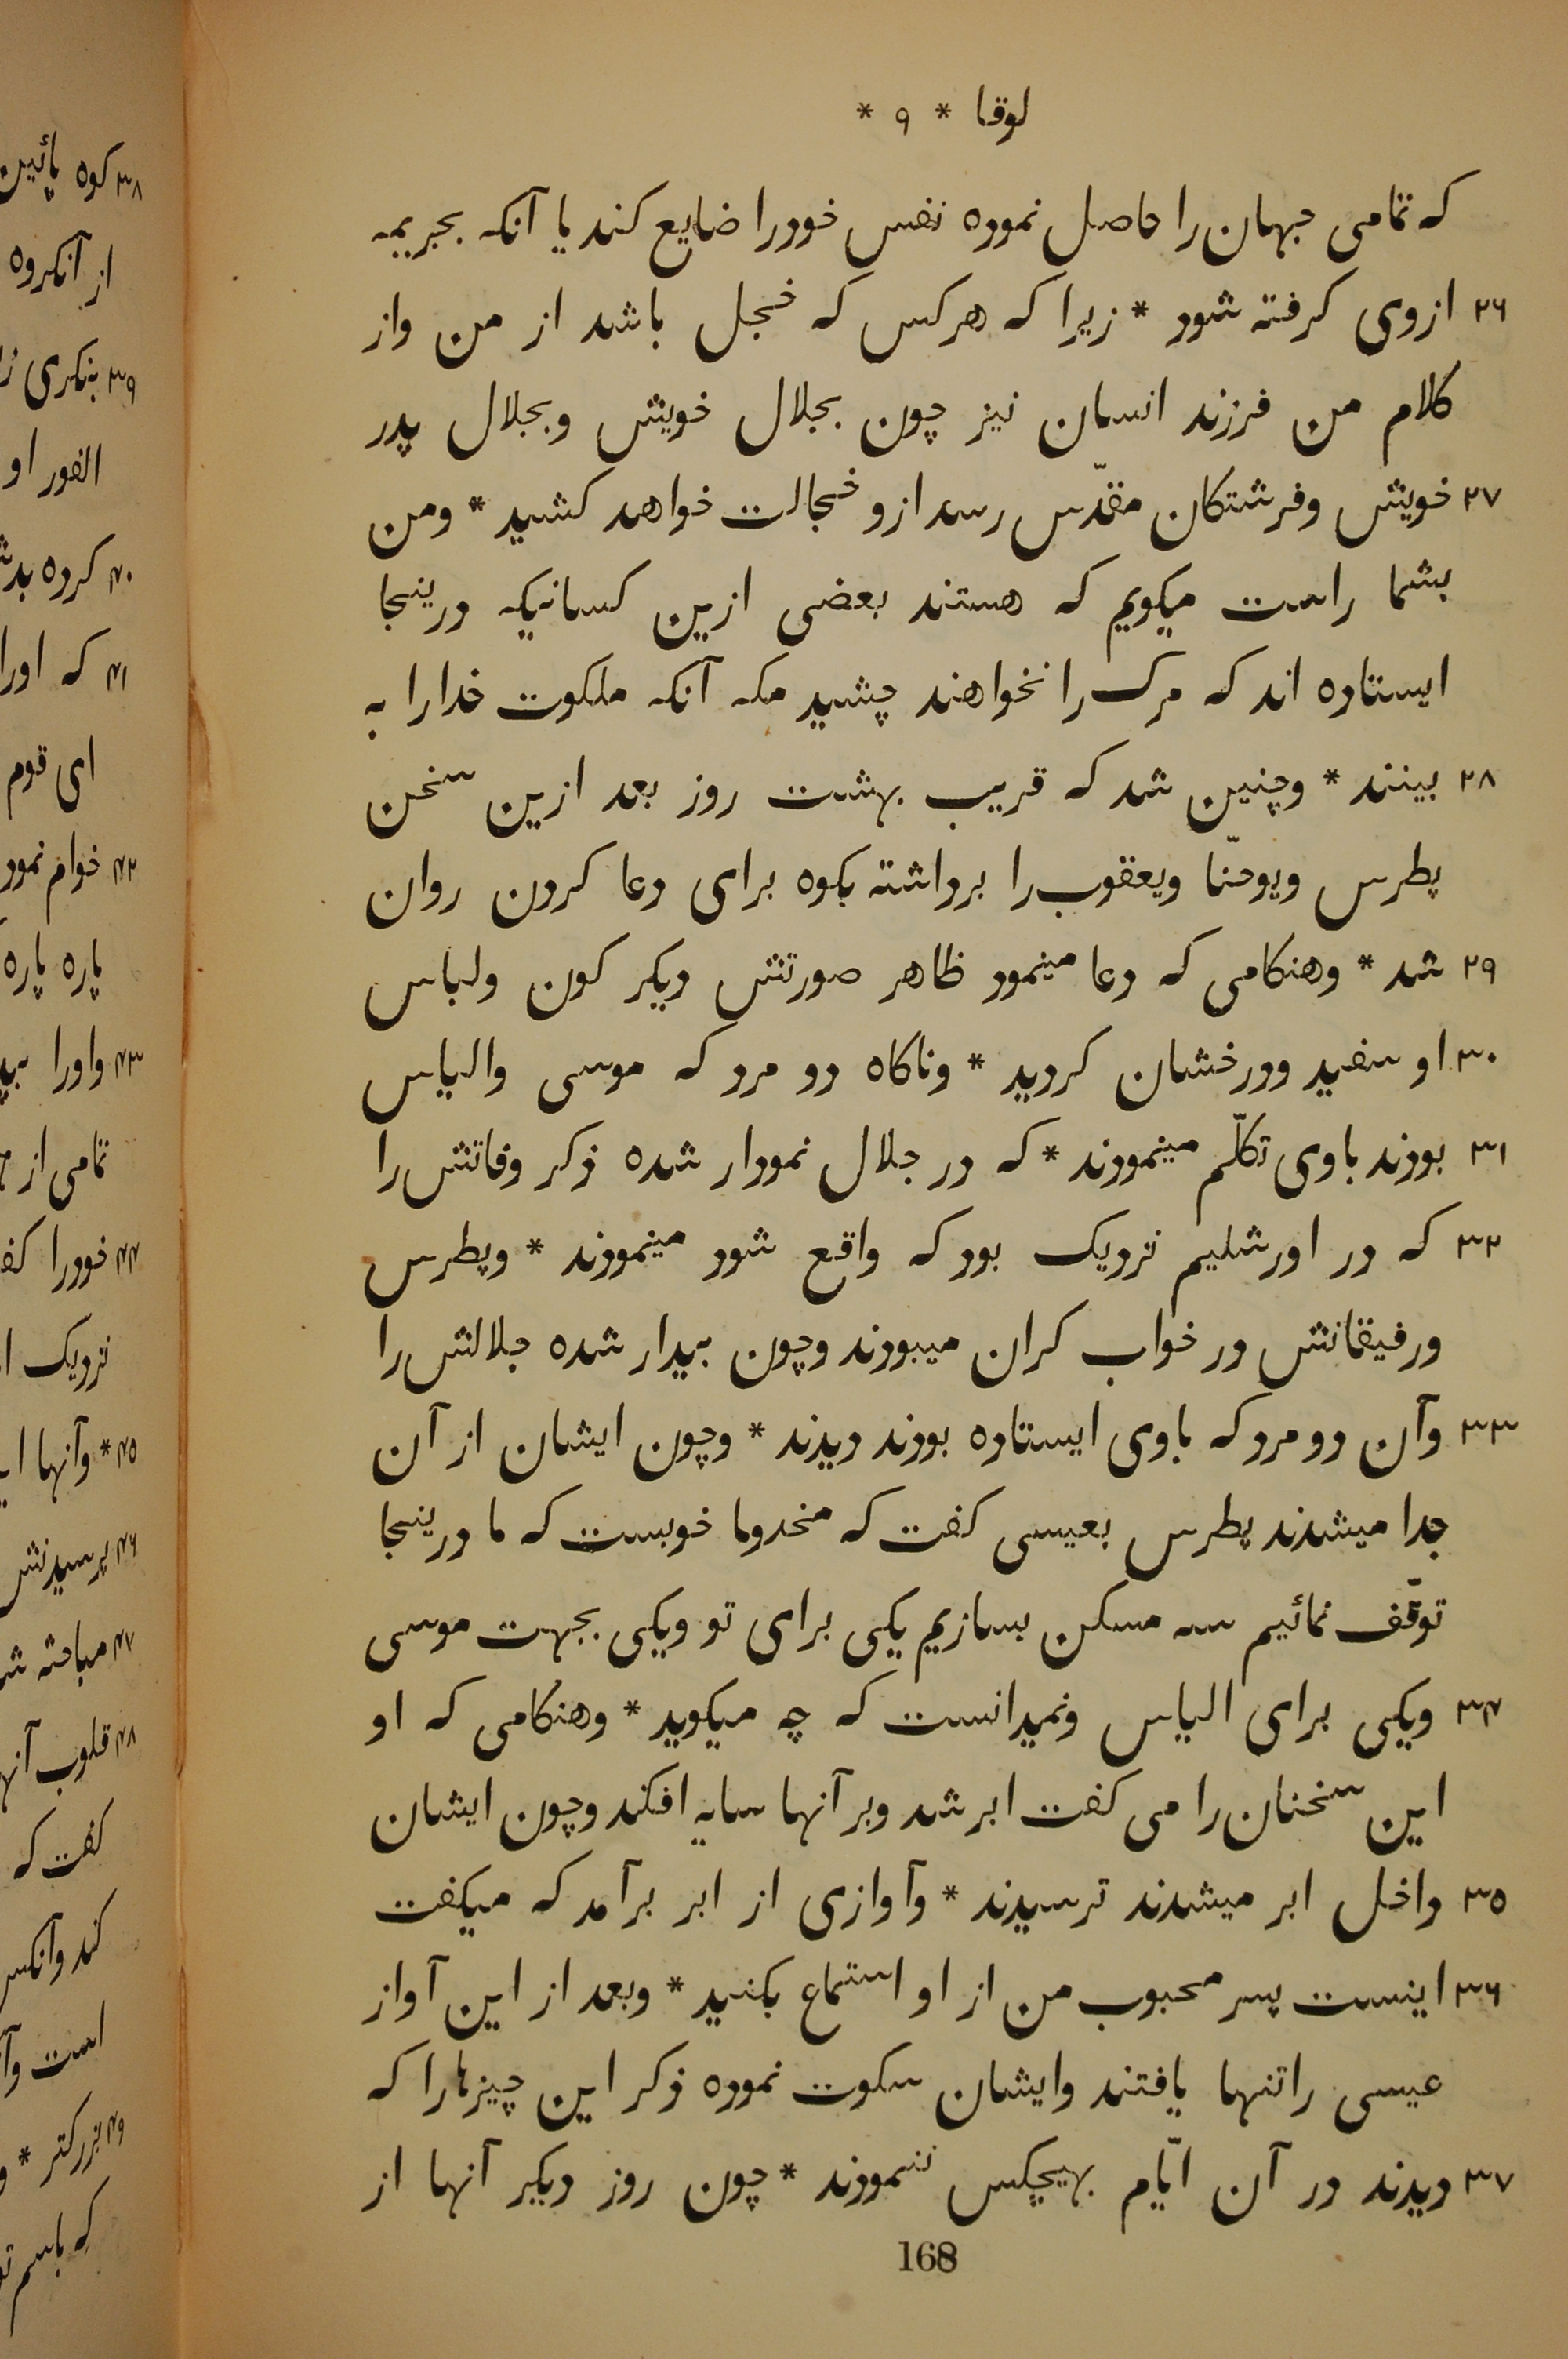 لوقا * ۹ *
که تمامی جهان را حاصل نموده نفس خودرا ضایع کند یا آنکه بجریمه
۲۶ ازوی کرفته شود * زیرا که هرکس که خجل باشد از من واز
کلام من فرزند انسان نیز چون بجلال خویش وبجلال پدر
۲۷ خویش وفرشتکان مقدّس رسد ازو خجالت خواهد کشید * ومن
بشما راست میکویم که هستند بعضی ازین کسانیکه درینجا
ایستاده اند که مرک را نخواهند چشید مکه آنکه ملکوت خدارا به
۲۸ بینند * وچنین شد که قریب بهشت روز بعد ازین سخن
پطرس ویوحنّا ویعقوب را برداشته بکوه برای دعا کردن روان
۲۹ شد * وهنکامی که دعا مینمود ظاهر صورتش دیکر کون ولباس
۳۰ او سفید ودرخشان کردید * وناکاه دو مرد که موسی والیاس
۳۱ بودند باوی تکلّم مینمودند * که در جلال نمودار شده ذکر وفاتش را
۳۲ که در اورشلیم نزدیک بود که واقع شود مینمودند * وپطرس
ورفیقانش در خواب کران میبودند وچون بیدار شده جلالش را
۳۳ وآن دو مرد که باوی ایستاده بودند دیدند * وچون ایشان از آن
جدا میشدند پطرس بعیسی کفت که مخدوما خوبست که ما درینجا
توقّف نمائیم سه مسکن بسازیم یکی برای تو ویکی بجهت موسی
۳۴ ویکی برای الیاس ونمیدانست که چه میکوید * وهنکامی که او
این سخنان را می کفت ابر شد وبر آنها سایه افکند وچون ایشان
۳۵ داخل ابر میشدند ترسیدند * وآوازی از ابر برآمد که میکفت
۳۶ اینست پسر محبوب من از او استماع بکنید * وبعد از این آواز
عیسی را تنها یافتند وایشان سکوت نموده ذکر این چیزها را که
۳۷ دیدند در آن ایّام بهیچکس ننمودند * چون روز دیکر آنها از
168
۳۸ کوه پائین
از آنکروه
۳۹ بنکری
الفور او
۴۰ کرده
۴۱ که اورا
ای قوم
۴۲ خواهم نمود
پاره پاره
۴۳ واورا
تمامی از
۴۴ خودرا
نزدیک
۴۵ * وآنها
۴۶ پرسیدنش
۴۷ مباحثه
۴۸ قلوب
کفت که
کند وآنکس
است
۴۹ بزرکتر *
که باسم